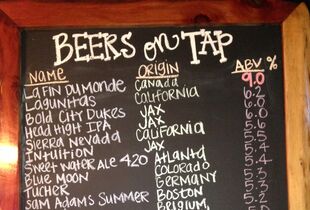 BEERS on TAP
NAME ORIGIN ABV %
LA FIN DU MONDE Canada 9.0
LAGUNITAS CALIFORNIA 6.2
BOLD CITY DUKES JAX 6.0
HEAD HIGH IPA JAX
SIERRA NEVADA CALIFORNIA 5.5
INTUITION JAX 5.4
SWEET WATER ALE 420 ATLANTA 5.4
BLUE MOON COLORADO
TUCHER GERMANY 5.3
SAM ADAMS SUMMER BOSTON 5.2
BELGIUM,